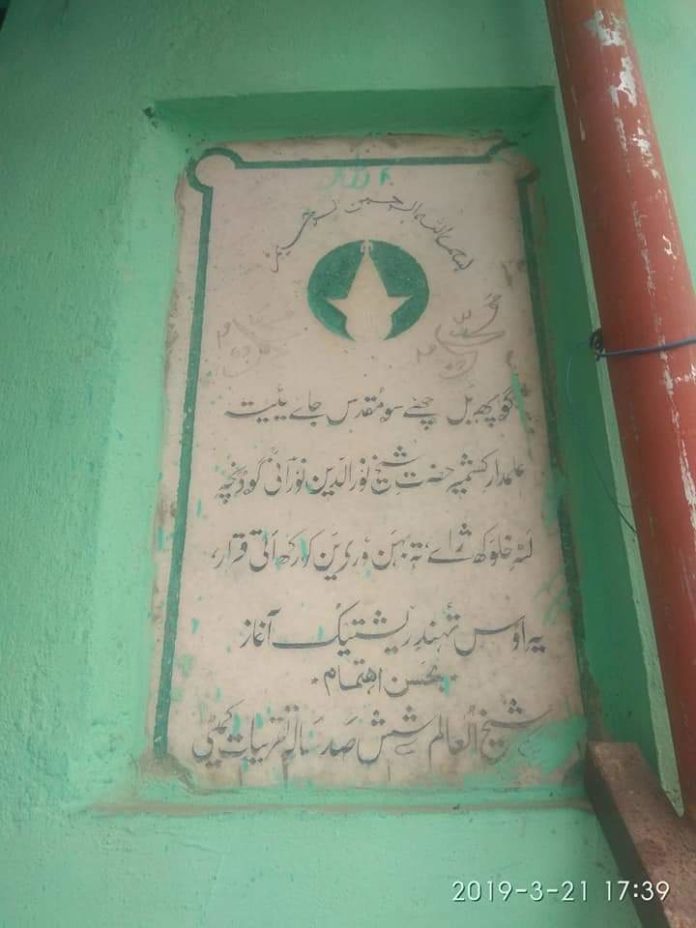 بسم اللہ الرحمن الرحیم
گوپھ بل چھےٚ سو مُقدس جاے ییٚتہِ
علمدارِ کشمیر حضرتِ شیخ نور الدین نورانیؒ گوڈنچہِ
لٹہِ خلوَکھ ژاے، تہٕ بہن ؤرِین کوٚرکھ اتی قرار،
یہ اوس تہندِ ریشتیُک آغاز
بحسن اہتمام
شیخ العالم شش صد سالہ تقریبات کمیٹی
2019-3-21 17:39